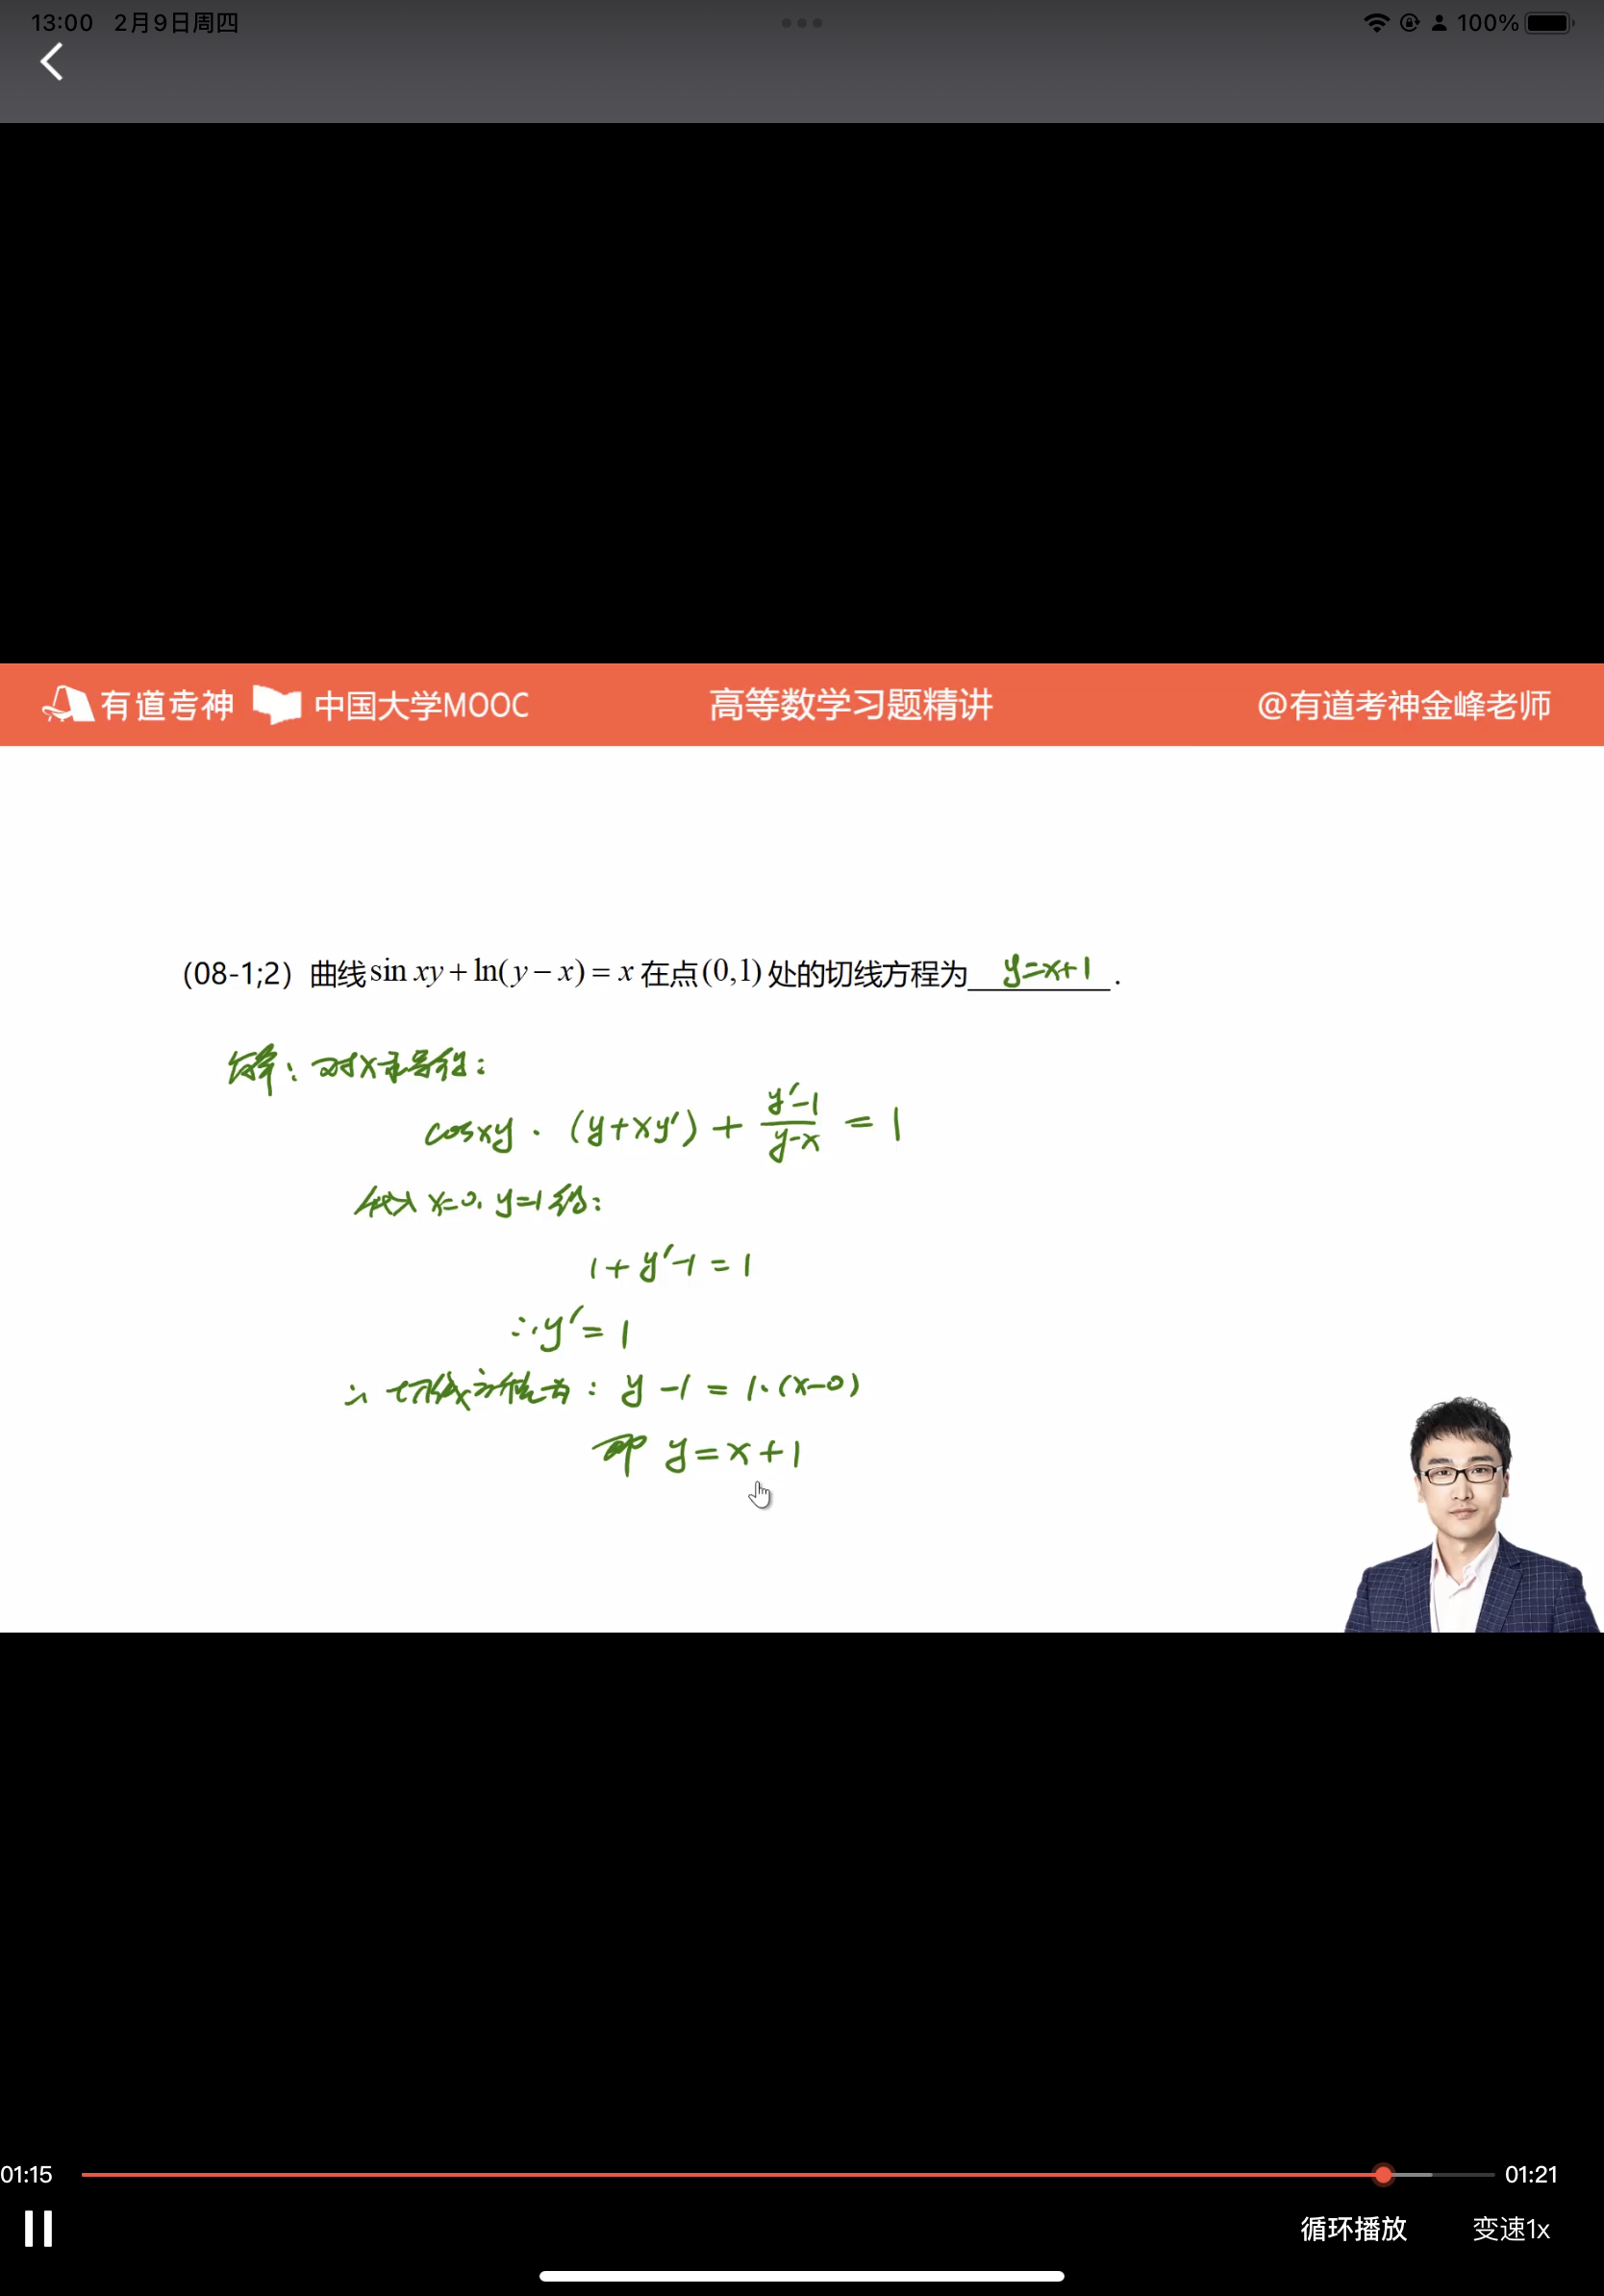 13:00 2月9日周四 100%
有道考神 中国大学MOOC 高等数学习题精讲 @有道考神金峰老师
(08-1;2) 曲线 sin xy + ln(y − x) = x 在点(0,1) 处的切线方程为 y=x+1 .
解: 对x求导得:
cosxy · (y+xy′) + (y′-1)/(y-x) = 1
代入 x=0, y=1 得:
1+y′-1=1
∴y′=1
∴ 切线方程为: y-1=1·(x-0)
即 y=x+1
01:15 01:21
循环播放 变速1x